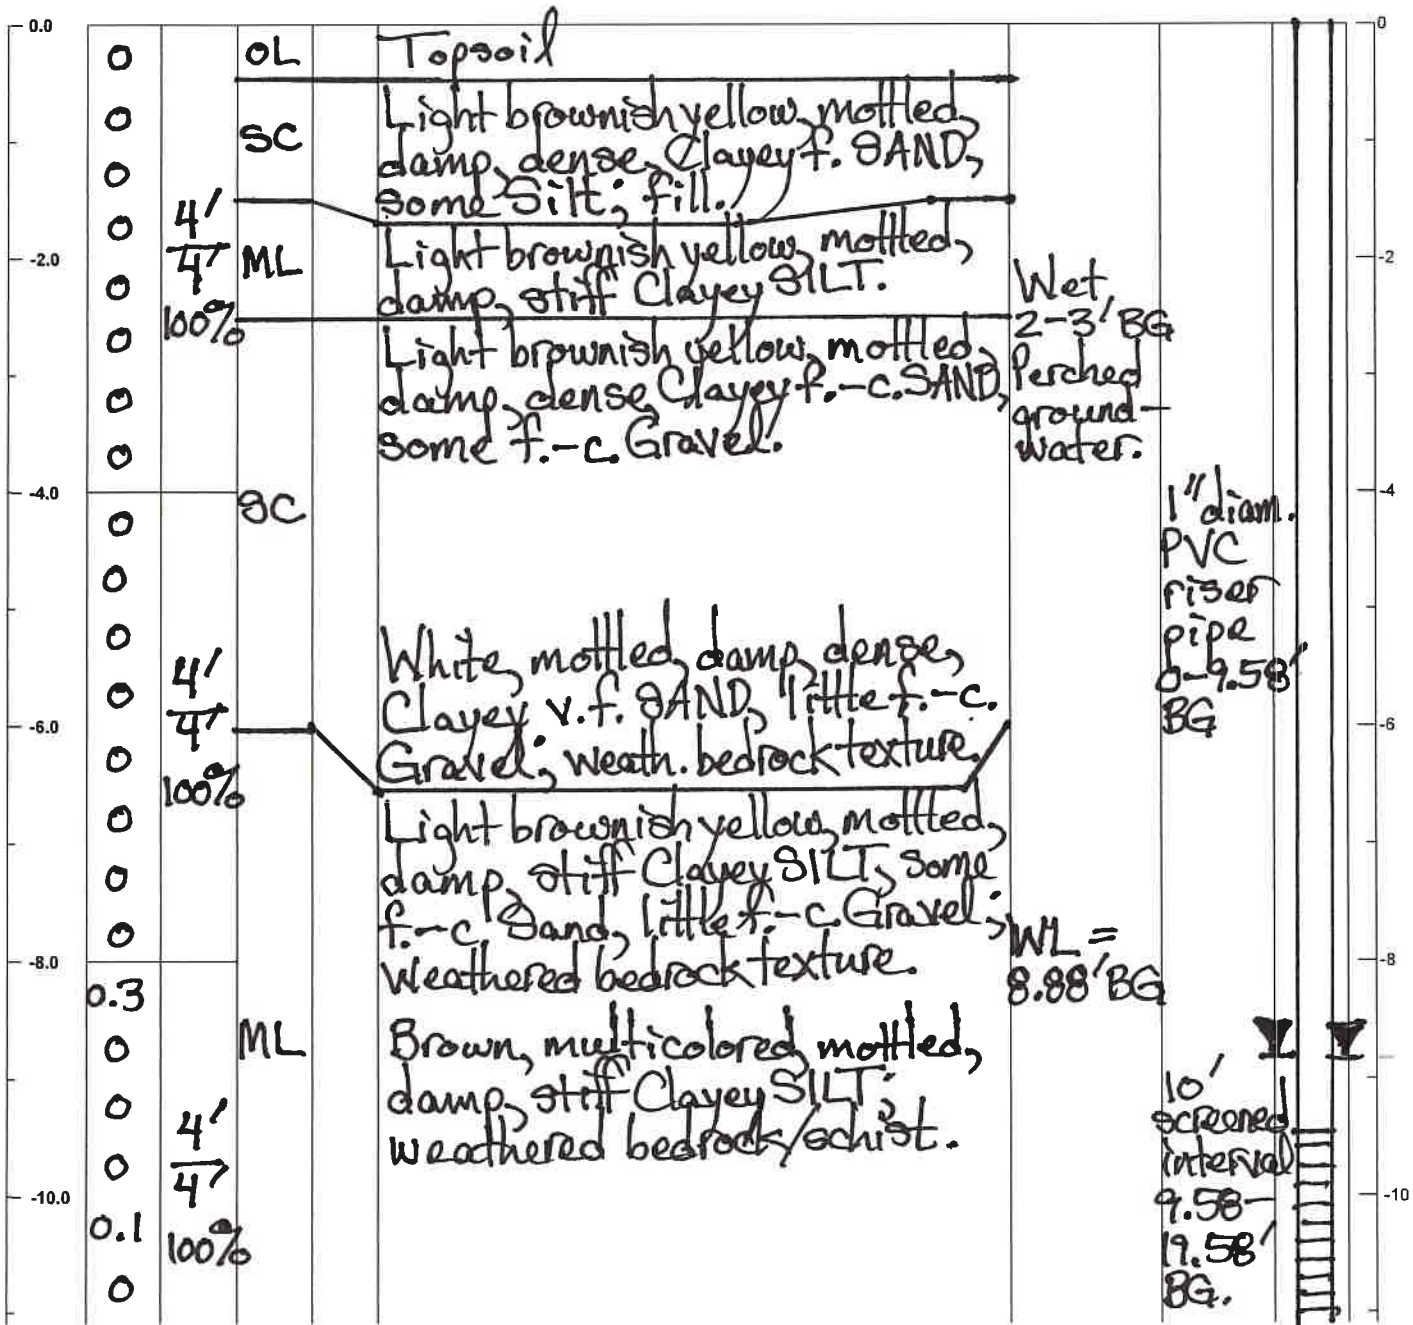 0.0
-2.0
-4.0
-6.0
-8.0
-10.0
0
0
0
0
0
0
0
0
0
0
0
0
0
0
0
0
0.3
0
0
0
0.1
0
4'
4'
100%
4'
4'
100%
4'
4'
100%
OL
SC
ML
SC
ML
Topsoil
Light brownish yellow, mottled,
damp, dense, Clayey f. SAND,
some Silt; fill.
Light brownish yellow, mottled,
damp, stiff Clayey SILT.
Light brownish yellow, mottled,
damp, dense, Clayey f.-c. SAND,
some f.-c. Gravel.
White, mottled, damp, dense,
Clayey v.f. SAND, little f.-c.
Gravel; weath. bedrock texture.
Light brownish yellow, mottled,
damp, stiff Clayey SILT, some
f.-c. Sand, little f.-c. Gravel;
weathered bedrock texture.
Brown, multicolored, mottled,
damp, stiff Clayey SILT;
weathered bedrock/schist.
Wet
2-3' BG
Perched
ground-
water.
WL =
8.88' BG
1" diam.
PVC
riser
pipe
0-9.58'
BG
10'
screened
interval
9.58-
19.58'
BG.
0
-2
-4
-6
-8
-10